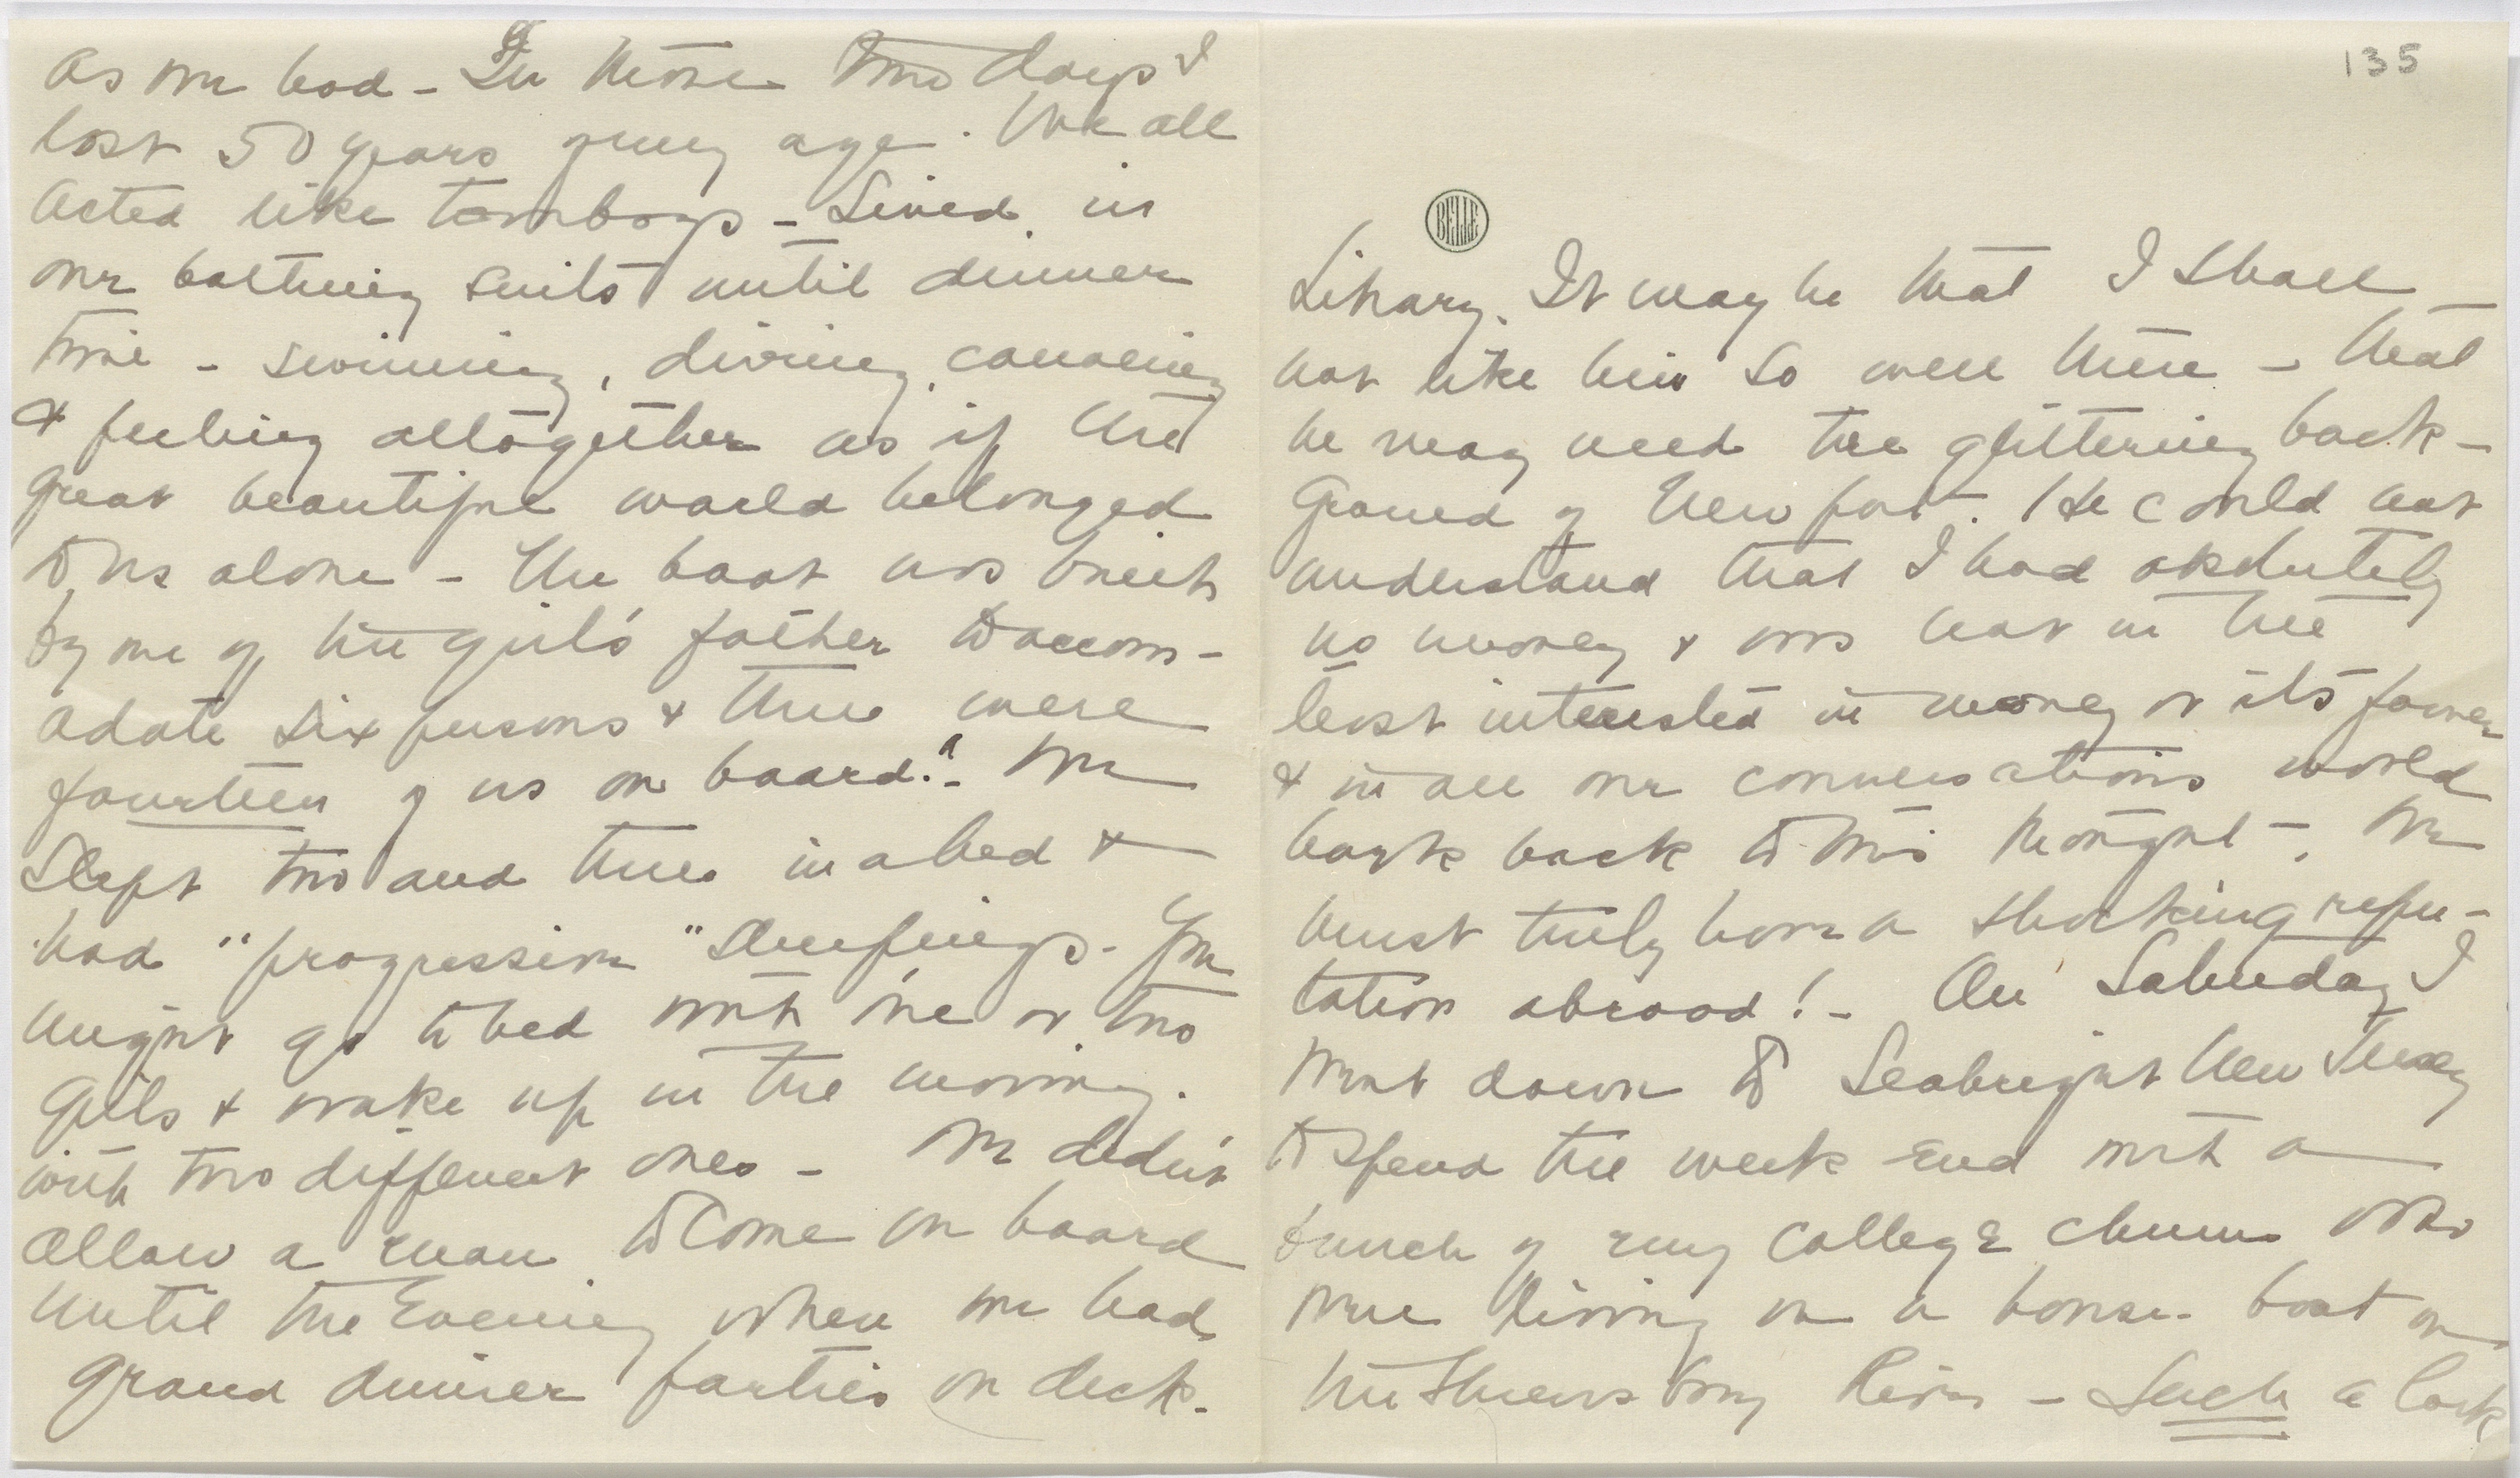 as we had - In those two days I
lost 50 years of my age. We all
acted like tomboys - Lived in
our bathing suits until dinner
time - swimming, diving, canoeing
& feeling altogether as if the
great beautiful world belonged
to us alone - The boat was built
by one of the girls' father to accom-
adate six persons & there were
fourteen of us on board! - We
slept two and three in a bed &
had "progressive" sleepings - You
might go to bed with one or two
girls & wake up in the morning
with two different ones - We didn't
allow a man to come on board
until the evening when we had
grand dinner parties on deck -
135
BELLE
Library. It may be that I shall
not like him so well there - that
he may need the glittering back-
ground of Newport. He could not
understand that I had absolutely
no money & was not in the
least interested in money or its power
& in all our conversations would
hark back to this thought - We
must truly have a shocking repu-
tation abroad! - On Saturday I
went down to Seabright New Jersey
to spend the week end with a
bunch of my college chums who
were living on a house-boat on
the Shrewsbury River - Such a lark